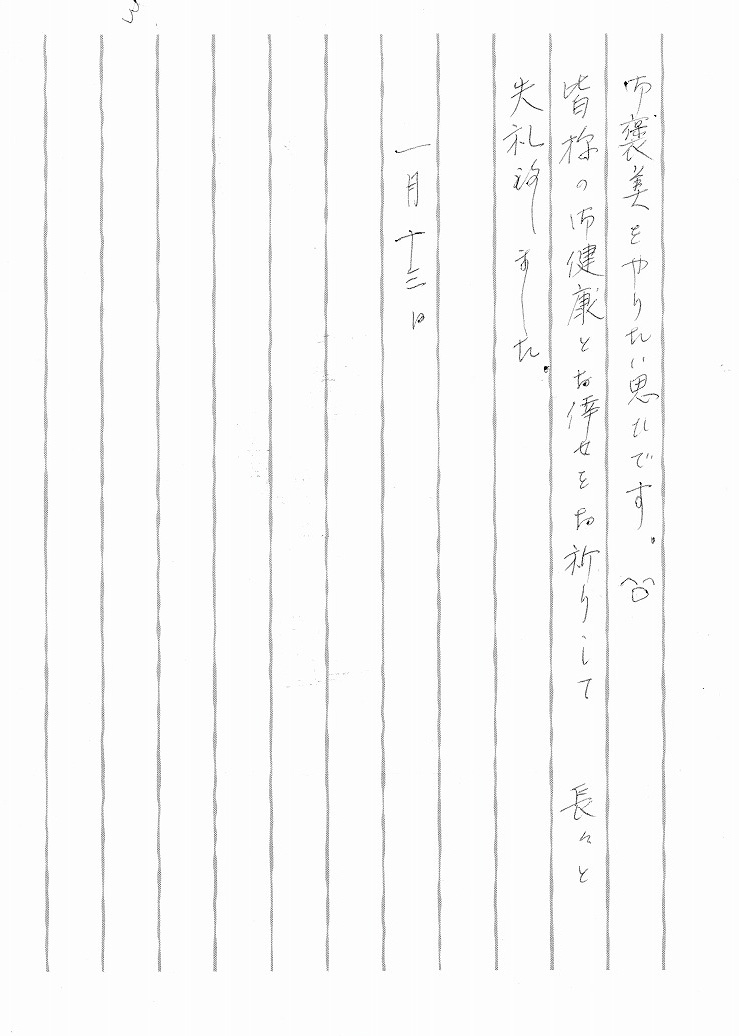 御褒美をやりたい思ひです。^ロ^
皆様の御健康とお倖せをお祈りして　長々と
失礼致しました。
一月十三日
3